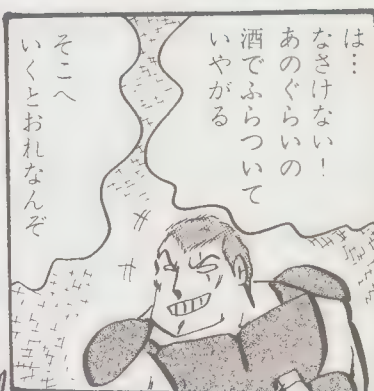 は…
なさけない！
あのぐらいの
酒でふらついて
いやがる
そこへ
いくとおれなんぞ